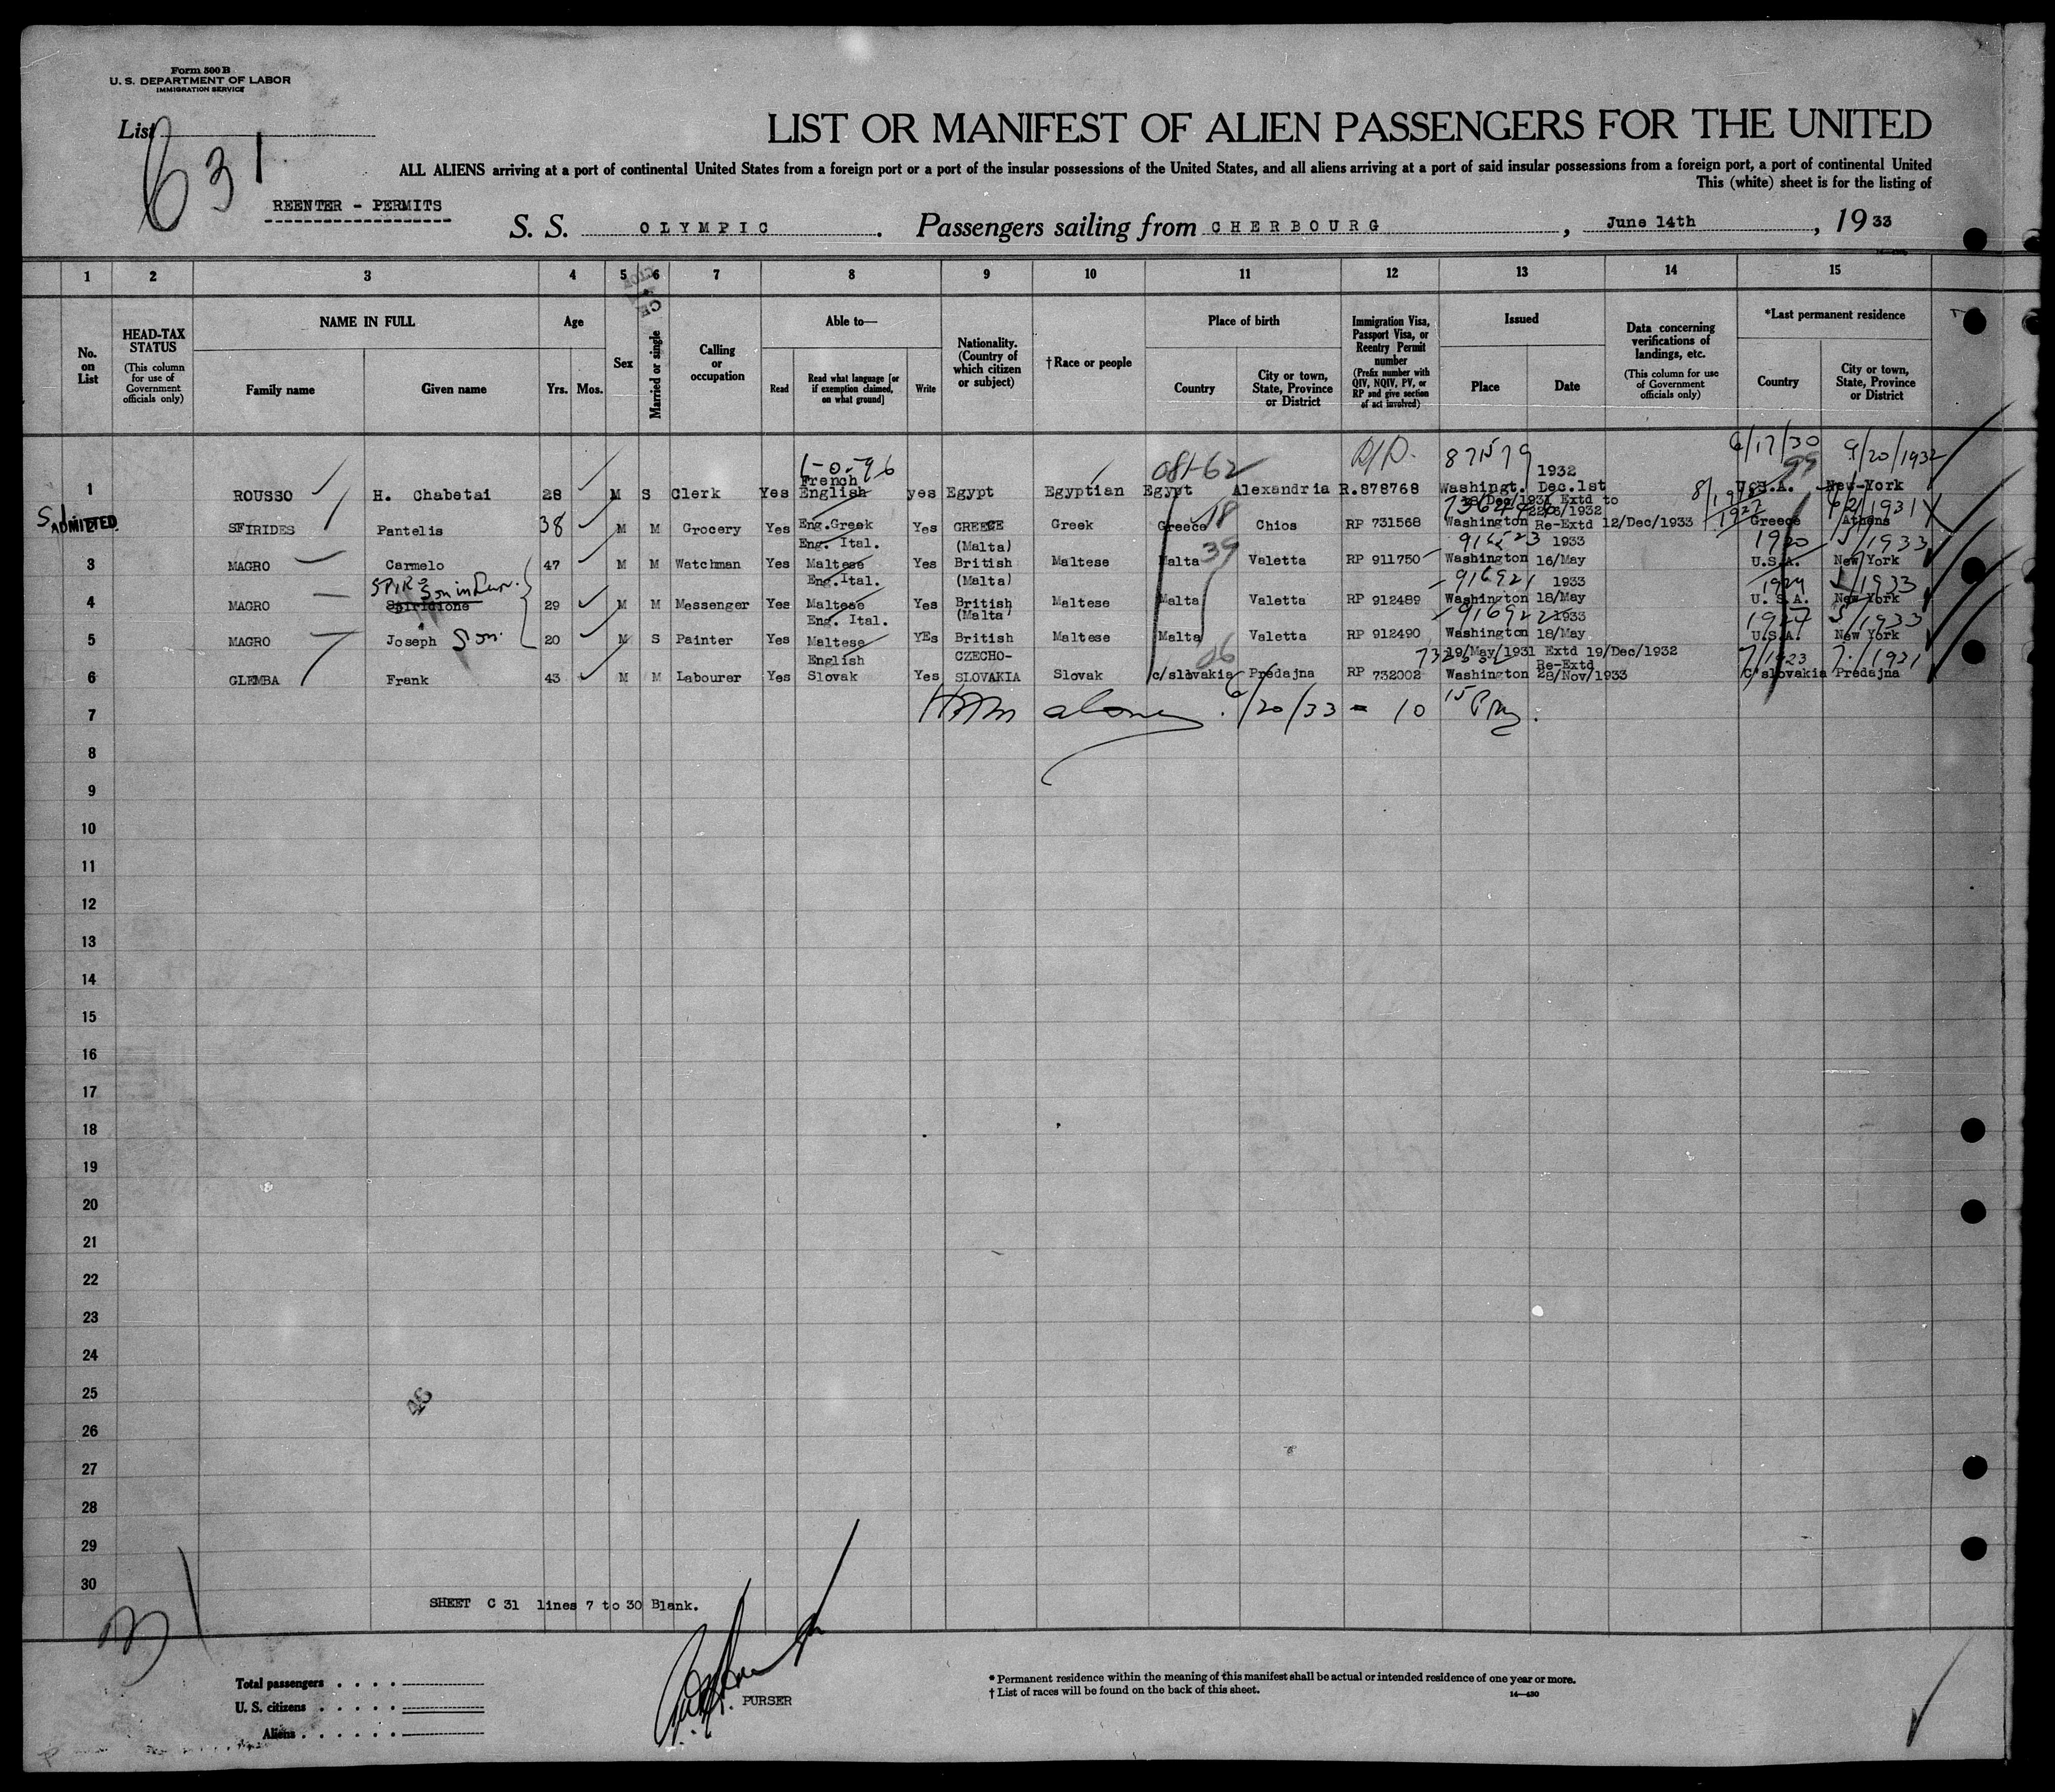 Form 500 B
U. S. DEPARTMENT OF LABOR
IMMIGRATION SERVICE
List
631
LIST OR MANIFEST OF ALIEN PASSENGERS FOR THE UNITED
ALL ALIENS arriving at a port of continental United States from a foreign port or a port of the insular possessions of the United States, and all aliens arriving at a port of said insular possessions from a foreign port, a port of continental United
This (white) sheet is for the listing of
REENTER - PERMITS
S. S. OLYMPIC. Passengers sailing from CHERBOURG, June 14th, 1933
1 2 3 4 5 6 7 8 9 10 11 12 13 14 15
No. on List
HEAD-TAX STATUS
(This column for use of Government officials only)
NAME IN FULL
Family name
Given name
Age
Yrs. Mos.
Sex
Married or single
Calling or occupation
Able to—
Read
Read what language [or if exemption claimed, on what ground]
Write
Nationality. (Country of which citizen or subject)
†Race or people
Place of birth
Country
City or town, State, Province or District
Immigration Visa, Passport Visa, or Reentry Permit number
(Prefix number with QIV, NQIV, PV, or RP and give section of act involved)
Issued
Place
Date
Data concerning verifications of landings, etc.
(This column for use of Government officials only)
*Last permanent residence
Country
City or town, State, Province or District
08-62 87579 6/17/30 9/20/1932
99
1 ROUSSO H. Chabetai 28 M S Clerk Yes French English yes Egypt Egyptian Egypt Alexandria R.878768 Washingt. Dec.1st 1932 U.S.A. New-York
ADMITTED
2 SFIRIDES Pantelis 38 M M Grocery Yes Eng.Greek Yes GREECE Greek Greece 18 Chios RP 731568 Washington Re-Extd 12/Dec/1933 Greece Athens
3 MAGRO Carmelo 47 M M Watchman Yes Eng. Ital. Maltese Yes (Malta) British Maltese Malta 39 Valetta RP 911750 Washington 16/May 1933 1920 5/1933 U.S.A. New York
4 MAGRO Spiridione Son in Law. 29 M M Messenger Yes Eng.Ital. Maltese Yes (Malta) British Maltese Malta Valetta RP 912489 916921 Washington 18/May 1933 1924 5/1933 U. S.A. New York
5 MAGRO Joseph Son. 20 M S Painter Yes Eng. Ital. Maltese YEs (Malta) British Maltese Malta Valetta RP 912490 916922 Washington 18/May 1933 1924 5/1933 U.S.A. New York
6 GLEMBA Frank 43 M M Labourer Yes English Slovak Yes CZECHO-SLOVAKIA Slovak c/slovakia 06 Predajna RP 732002 19/May/1931 Extd 19/Dec/1932 Washington Re-Extd 28/Nov/1933 7/1923 7/1931 C'slovakia Predajna
7 6/20/33 - 10
8
9
10
11
12
13
14
15
16
17
18
19
20
21
22
23
24
25
26
27
28
29
30
SHEET C 31 lines 7 to 30 Blank.
Total passengers
U. S. citizens
Aliens
PURSER
* Permanent residence within the meaning of this manifest shall be actual or intended residence of one year or more.
† List of races will be found on the back of this sheet.
14—430